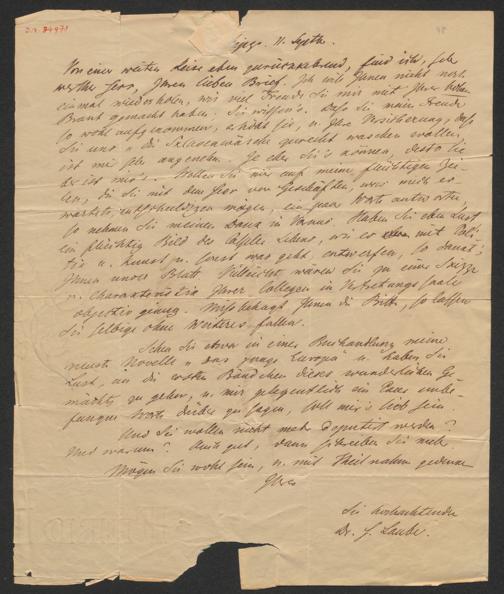 I.N. 84971
98
Leipzg. 11. Septbr.
Von einer weiten Reise eben zurückkehrend, finde ich, sehr
werther Herr, Ihren lieben Brief. Ich will Ihnen nicht noch
einmal wiederholen, wie viel Freude Sie mir mit Ihrer
gemacht haben. Sie wissen's. Daß Sie meine Freude
so wohl aufgenommen, erhöht sie, u. Ihre Versicherung, daß
Sie uns die gerecht wollen,
ist mir sehr angenehm. Je eher Sie's können, desto lie
ber ist mir's. Wollen Sie mir auf meine flüchtigen Zei
len, die Sie mit dem Heer von Geschäften, was mich er
wartete, entschuldigen mögen, ein paar Worte antworten,
so nehmen Sie meinen Dank in Voraus. Haben Sie eben Lust
ein flüchtig Bild des Lebens, wie es mit Poli
tik u. Kunst u. sonst was geht, entwerfen, so dankt's
Ihnen unser Blatt. Vielleicht wären Sie zu einer Skizze
u. Charakteristik Ihrer Collegen im
objectiv genug. Mißbehagt Ihnen die Bitte, so lassen
Sie selbige ohne Weiteres fallen.
Sehen Sie etwa in einer Buchhandlung meine
neueste Novelle „das junge Europa" u. haben Sie
Lust, an die ersten Bändchen dieses wunderlichen Ge
mächts zu gehen, u. mir gelegentlich ein Paar unbe
fangne Worte darüber zu sagen, soll mir's lieb sein.
Und Sie wollen nicht mehr Deputirt werden?
Und warum? Auch gut, dann schreiben Sie mehr.
Mögen Sie wohl sein, u. mit Theilnahme gedenken
Ihres
Sie hochachtenden
Dr. H. Laube.